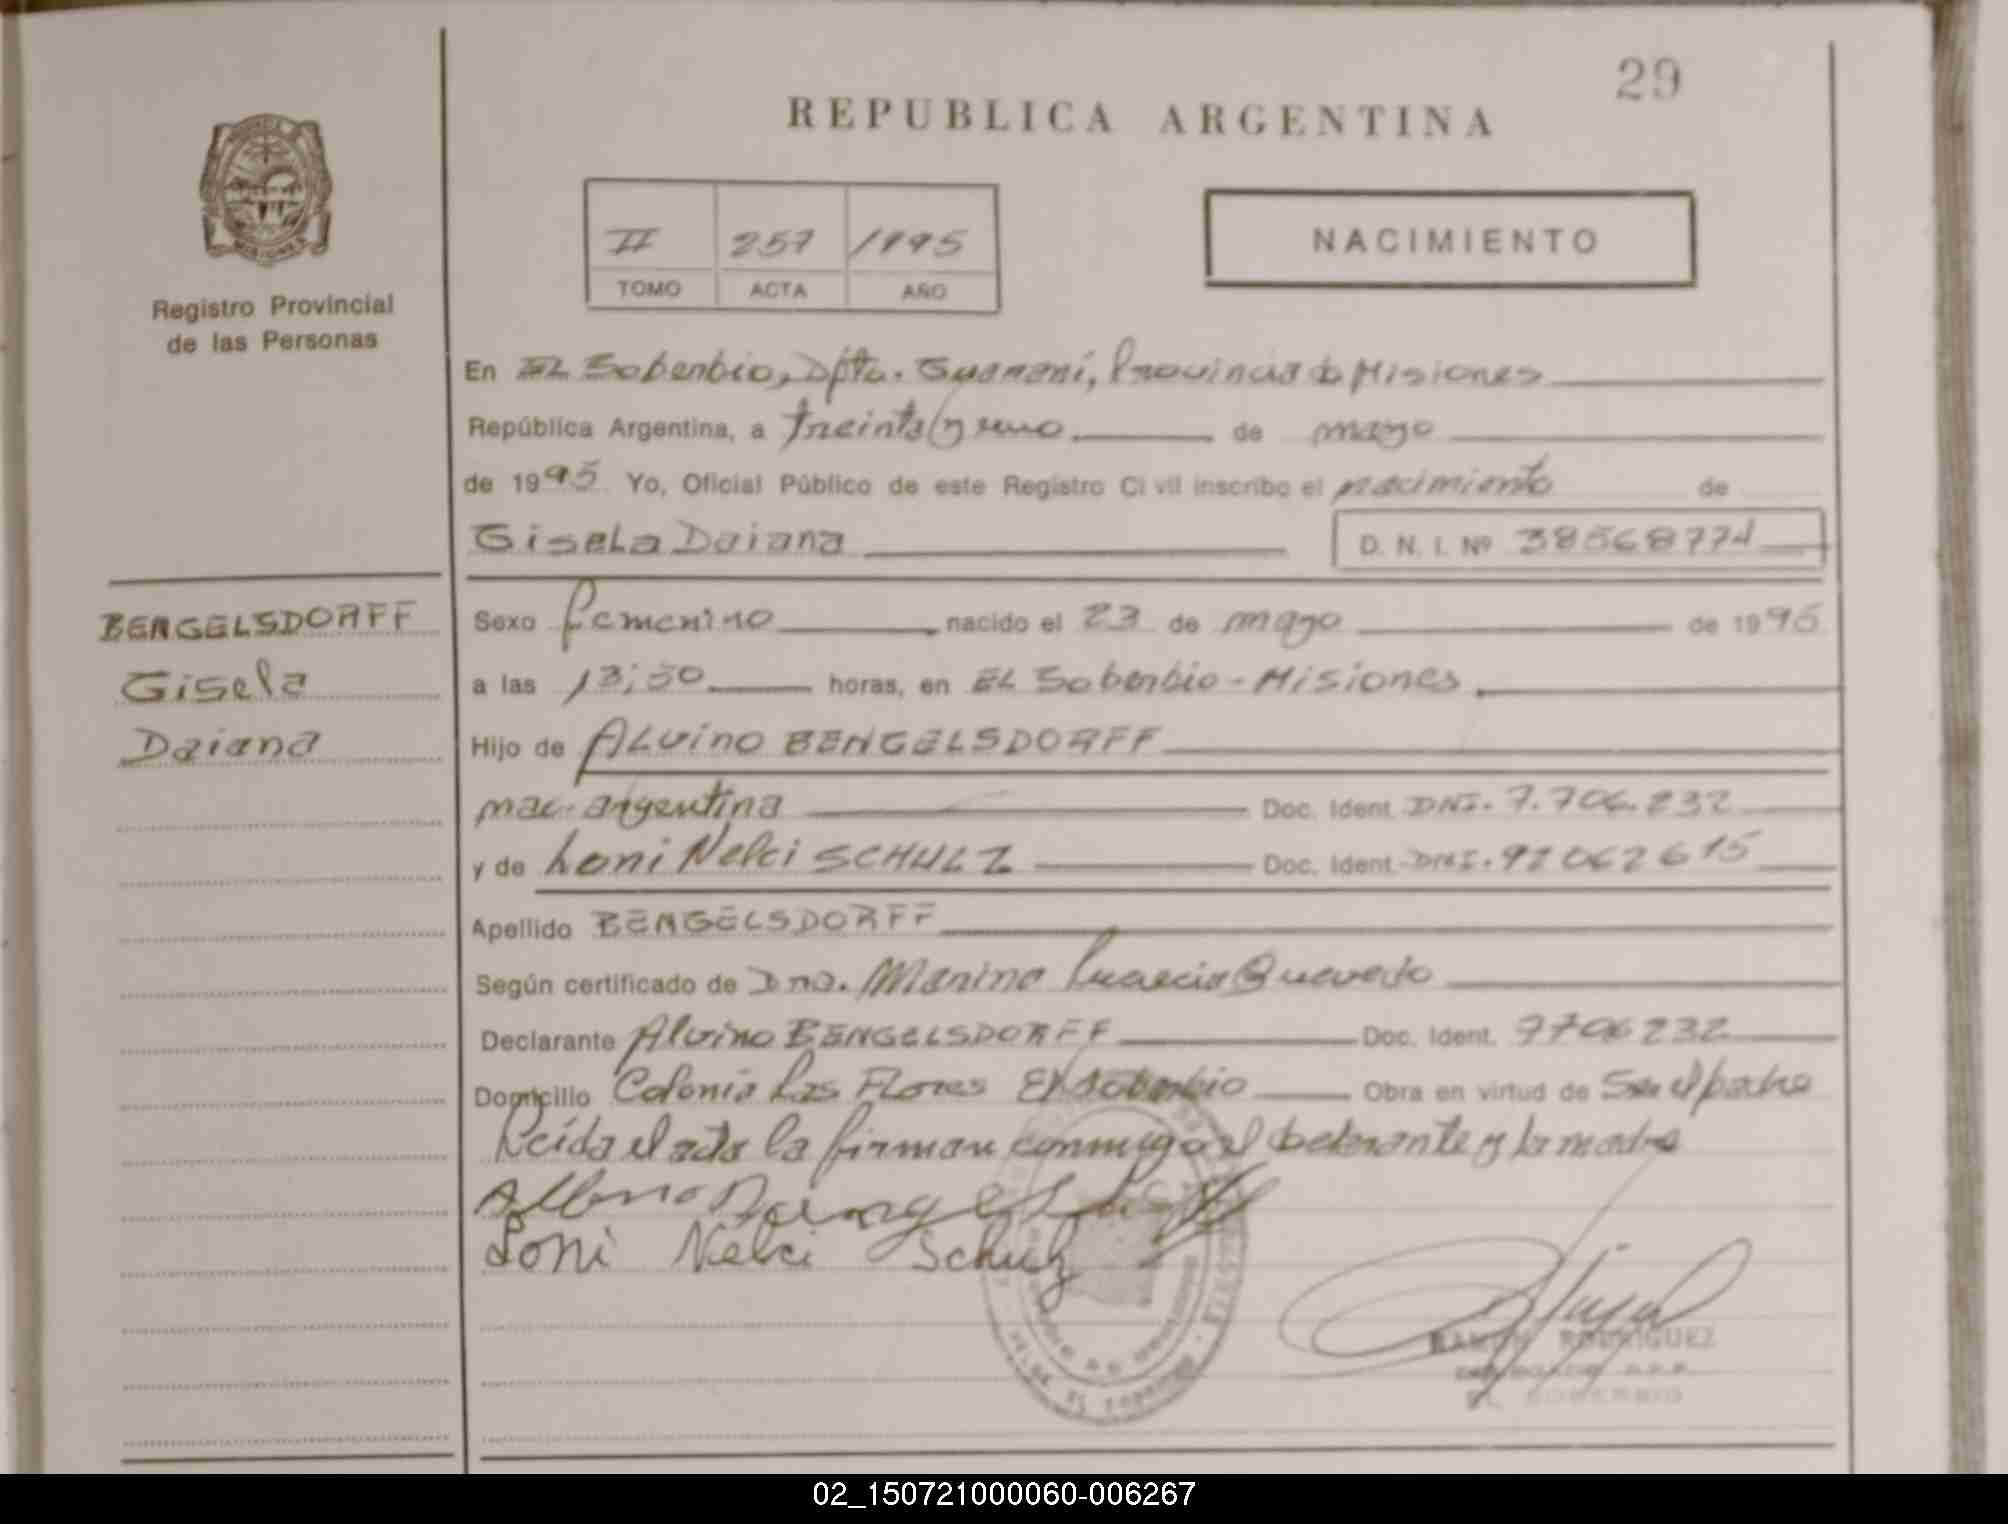 29
REPUBLICA ARGENTINA
MISIONES
Registro Provincial
de las Personas
II 257 1995
TOMO ACTA AÑO
NACIMIENTO
En El Soberbio, Dpto. Guaraní, Provincia de Misiones
República Argentina, a treinta y uno de mayo
de 1995 Yo, Oficial Público de este Registro Civil inscribo el nacimiento de
Gisela Daiana D. N. I. Nº 38568774
BENGELSDORFF
Gisela
Daiana
Sexo femenino nacido el 23 de mayo de 1995
a las horas, en El Soberbio - Misiones
Hijo de Alvino BENGELSDORFF
nac. argentina Doc. Ident. DNI. 7.706.232
y de Loni Nelci SCHULZ Doc. Ident. DNI. 92062615
Apellido BENGELSDORFF
Según certificado de Dra. Marina Quevedo
Declarante Alvino BENGELSDORFF Doc. Ident. 7706232
Domicilio Colonia Las Flores El Soberbio Obra en virtud de Ser el padre
Leída el acta la firman conmigo el declarante y la madre
Loni Nelci Schulz
RAMON RODRIGUEZ
EL SOBERBIO
02_150721000060-006267